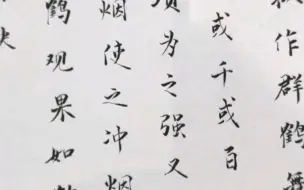 作群鹤
或千或百
须为之强又
烟使之冲烟
鹤观果如